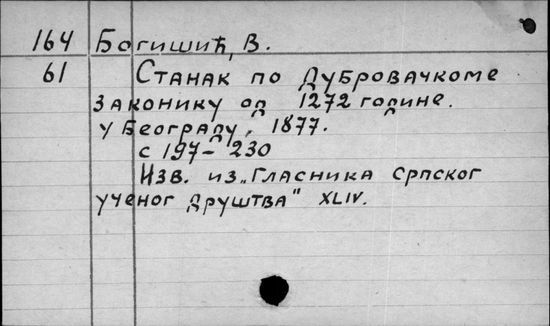 164 Богишић, В.
61 Станак по Дубровачкоме
законику од 1272 године.
у Београду, 1877.
с 197-230
Изв. из „Гласника српског
ученог друштва" XLIV.